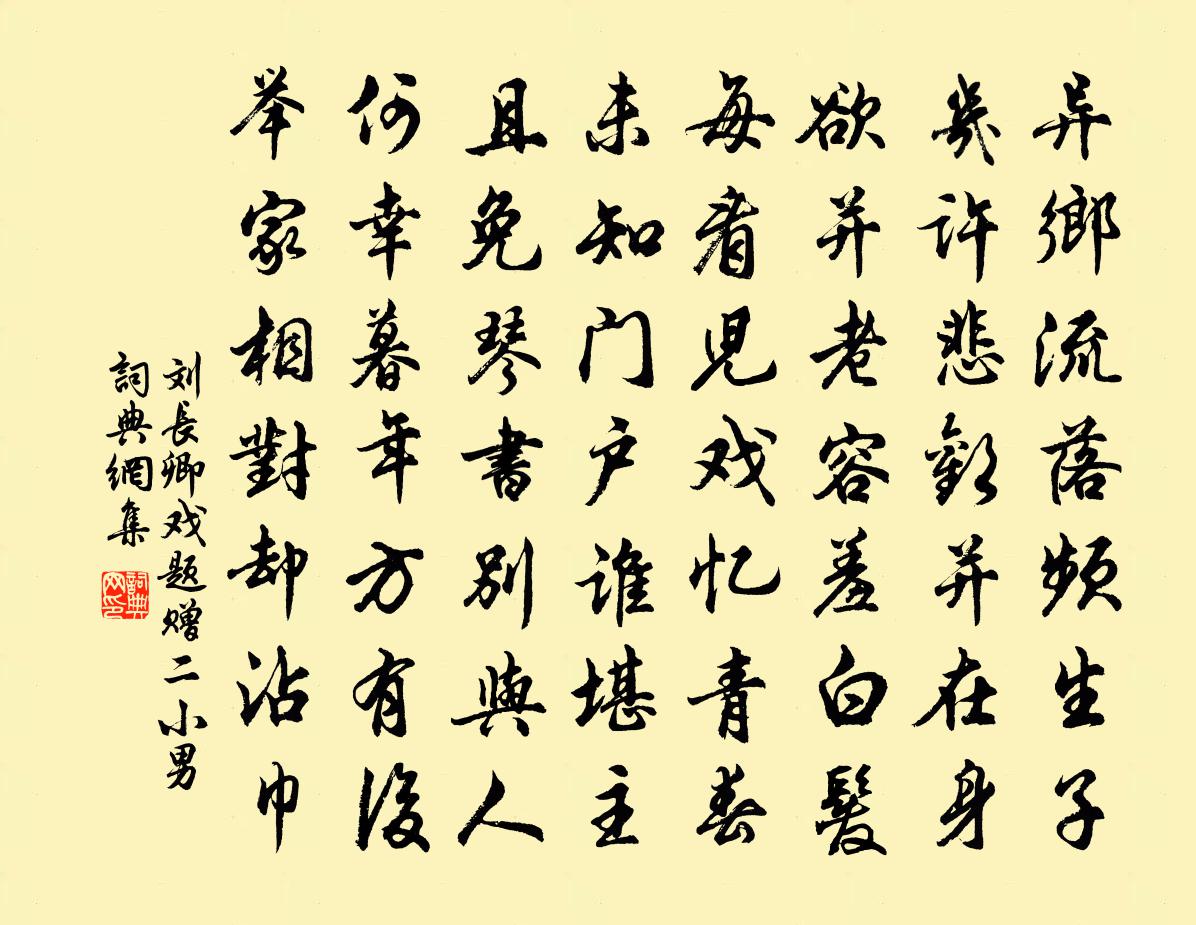 异鄉流落频生子
幾许悲歡并在身
欲并老容羞白髮
每看児戏忆青春
未知门户谁堪主
且免琴書别與人
何幸暮年方有後
举家相對却沾巾
刘長卿戏题赠二小男
詞典網集
詞典网印